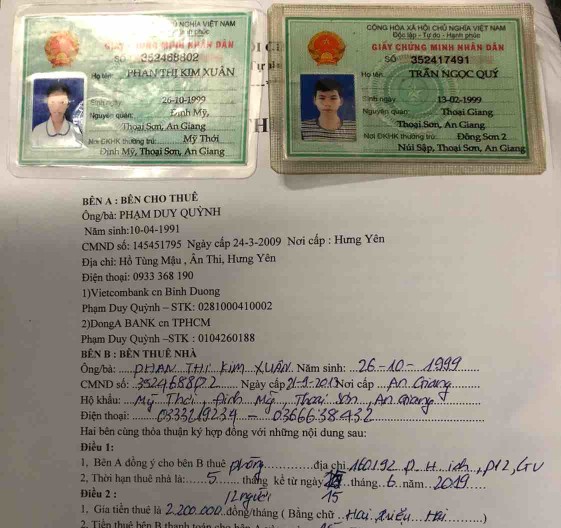 NGHĨA VIỆT NAM
GIẤY CHỨNG MINH NHÂN DÂN
SỐ 352468802
Họ tên: PHAN THỊ KIM XUÂN
Sinh ngày 26-10-1999
Nguyên quán: Định Mỹ,
Thoại Sơn, An Giang
Nơi ĐKHK thường trú: Mỹ Thới
Định Mỹ, Thoại Sơn, An Giang
CỘNG HÒA XÃ HỘI CHỦ NGHĨA VIỆT NAM
Độc lập - Tự do - Hạnh phúc
GIẤY CHỨNG MINH NHÂN DÂN
SỐ 352417491
Họ tên: TRẦN NGỌC QUÝ
Sinh ngày 13-02-1999
Nguyên quán: Thoại Giang
Thoại Sơn, An Giang
Nơi ĐKHK thường trú: Đông Sơn 2
Núi Sập, Thoại Sơn, An Giang
BÊN A : BÊN CHO THUÊ
Ông/bà: PHẠM DUY QUỲNH
Năm sinh:10-04-1991
CMND số: 145451795 Ngày cấp 24-3-2009 Nơi cấp : Hưng Yên
Địa chỉ: Hồ Tùng Mậu , Ân Thi, Hưng Yên
Điện thoại: 0933 368 190
1)Vietcombank cn Binh Duong
Phạm Duy Quỳnh – STK: 0281000410002
2)DongA BANK cn TPHCM
Phạm Duy Quỳnh –STK : 0104260188
BÊN B : BÊN THUÊ NHÀ
Ông/bà: PHAN THỊ KIM XUÂN Năm sinh: 26-10-1999
CMND số: 352468802 Ngày cấp Nơi cấp An Giang
Hộ khẩu: Mỹ Thới, Định Mỹ, Thoại Sơn, An Giang
Điện thoại: 0333219234 - 0366638432
Hai bên cùng thỏa thuận ký hợp đồng với những nội dung sau:
Điều 1:
1, Bên A đồng ý cho bên B thuê phòng địa chỉ P12, GV
2, Thời hạn thuê nhà là: 5 tháng kể từ ngày 15 tháng 6 năm 2019
Điều 2 : 12 người
1. Gia tiền thuê là 2.200.000 đồng/tháng ( Bằng chữ Hai triệu Hai )
2. Tiền thuê bên B thanh toán cho bên A